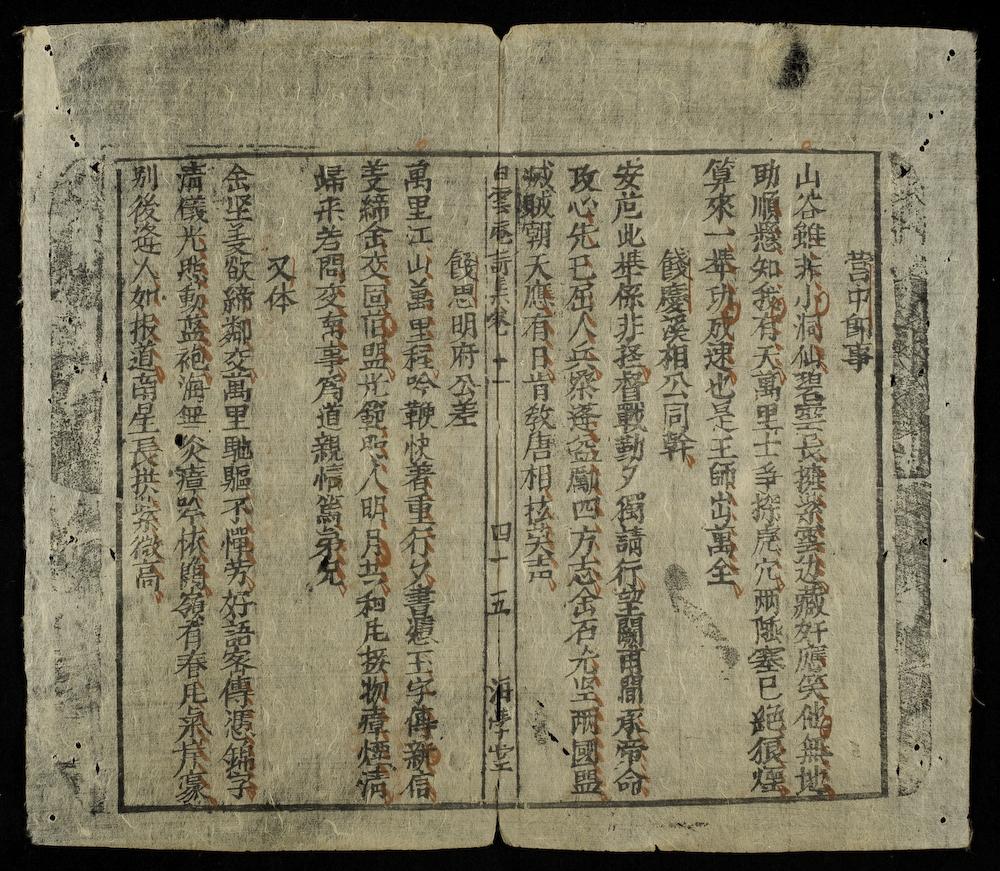 營中即事
山谷雖非小洞仙碧雲長擁紫雲边藏奸應笑他無地
助順懸知我有天萬里士爭探虎穴兩陲塞已絕狼煙
算來一舉功成速也是王師出萬全
餞慶溪相公同幹
安危此舉係非輕督戰勤夕獨請行望闕兩間承帝命
攻心先已屈人兵祭遵益勵四方志金石尤坚兩國盟
滅賊朝天應有日肯教唐相
白雲庵詩集卷十二
四十五
海學堂
餞思明府公差
萬里江山萬里程吟鞭快著重行夕書憑玉字傳新信
羙締金交回旧盟光範照人明月共利凡接物瘴煙清
歸来若問交南事為道親情篤弟兄
又体
金坚羙欲締鄰交萬里馳驅不憚劳好語客傳憑錦字
清儀光照動蓝袍海無炎瘴吟依關嶺有春凡桌岸豪
別後逢人如報道南星長拱紫微高